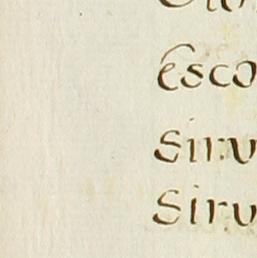 esco
siru
siru